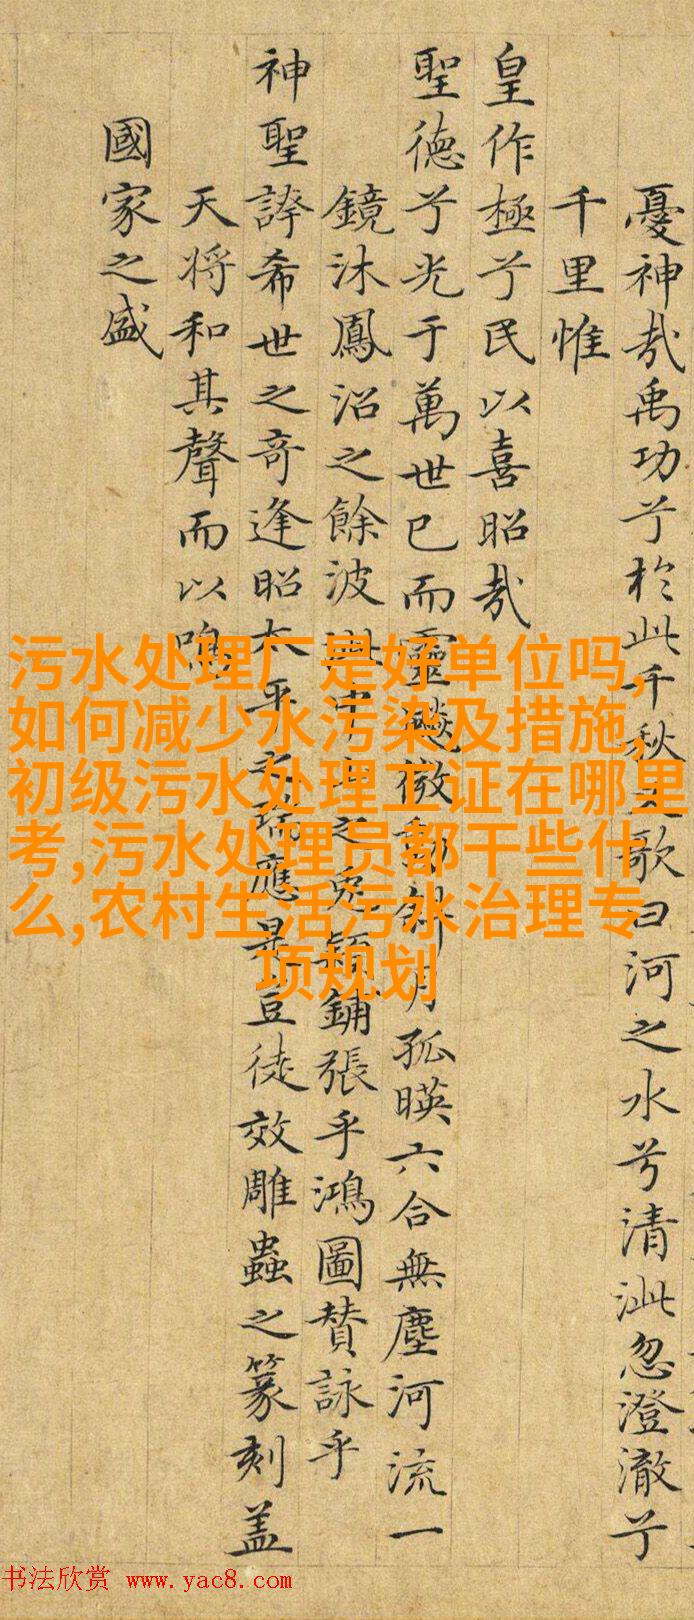 憂神哉禹功兮於此千秋歌曰河之水兮清泚忽澄澈兮
千里惟
皇作極兮民以喜昭哉
聖德兮光于萬世已而靈飈微動斜月孤暎六合無塵河流一
鏡沐鳳沼之餘波中山之兔穎鋪張乎鴻圖贊詠乎
神聖誇希世之奇逢昭太平之瑞應是豈徒效雕蟲之篆刻盖
天将和其聲而以鳴
國家之盛
污水处理厂是好单位吗,
如何减少水污染及措施,
初级污水处理工证在哪里
考,污水处理员都干些什
么,农村生活污水治理专
项规划
书法欣赏 www.yac8.com